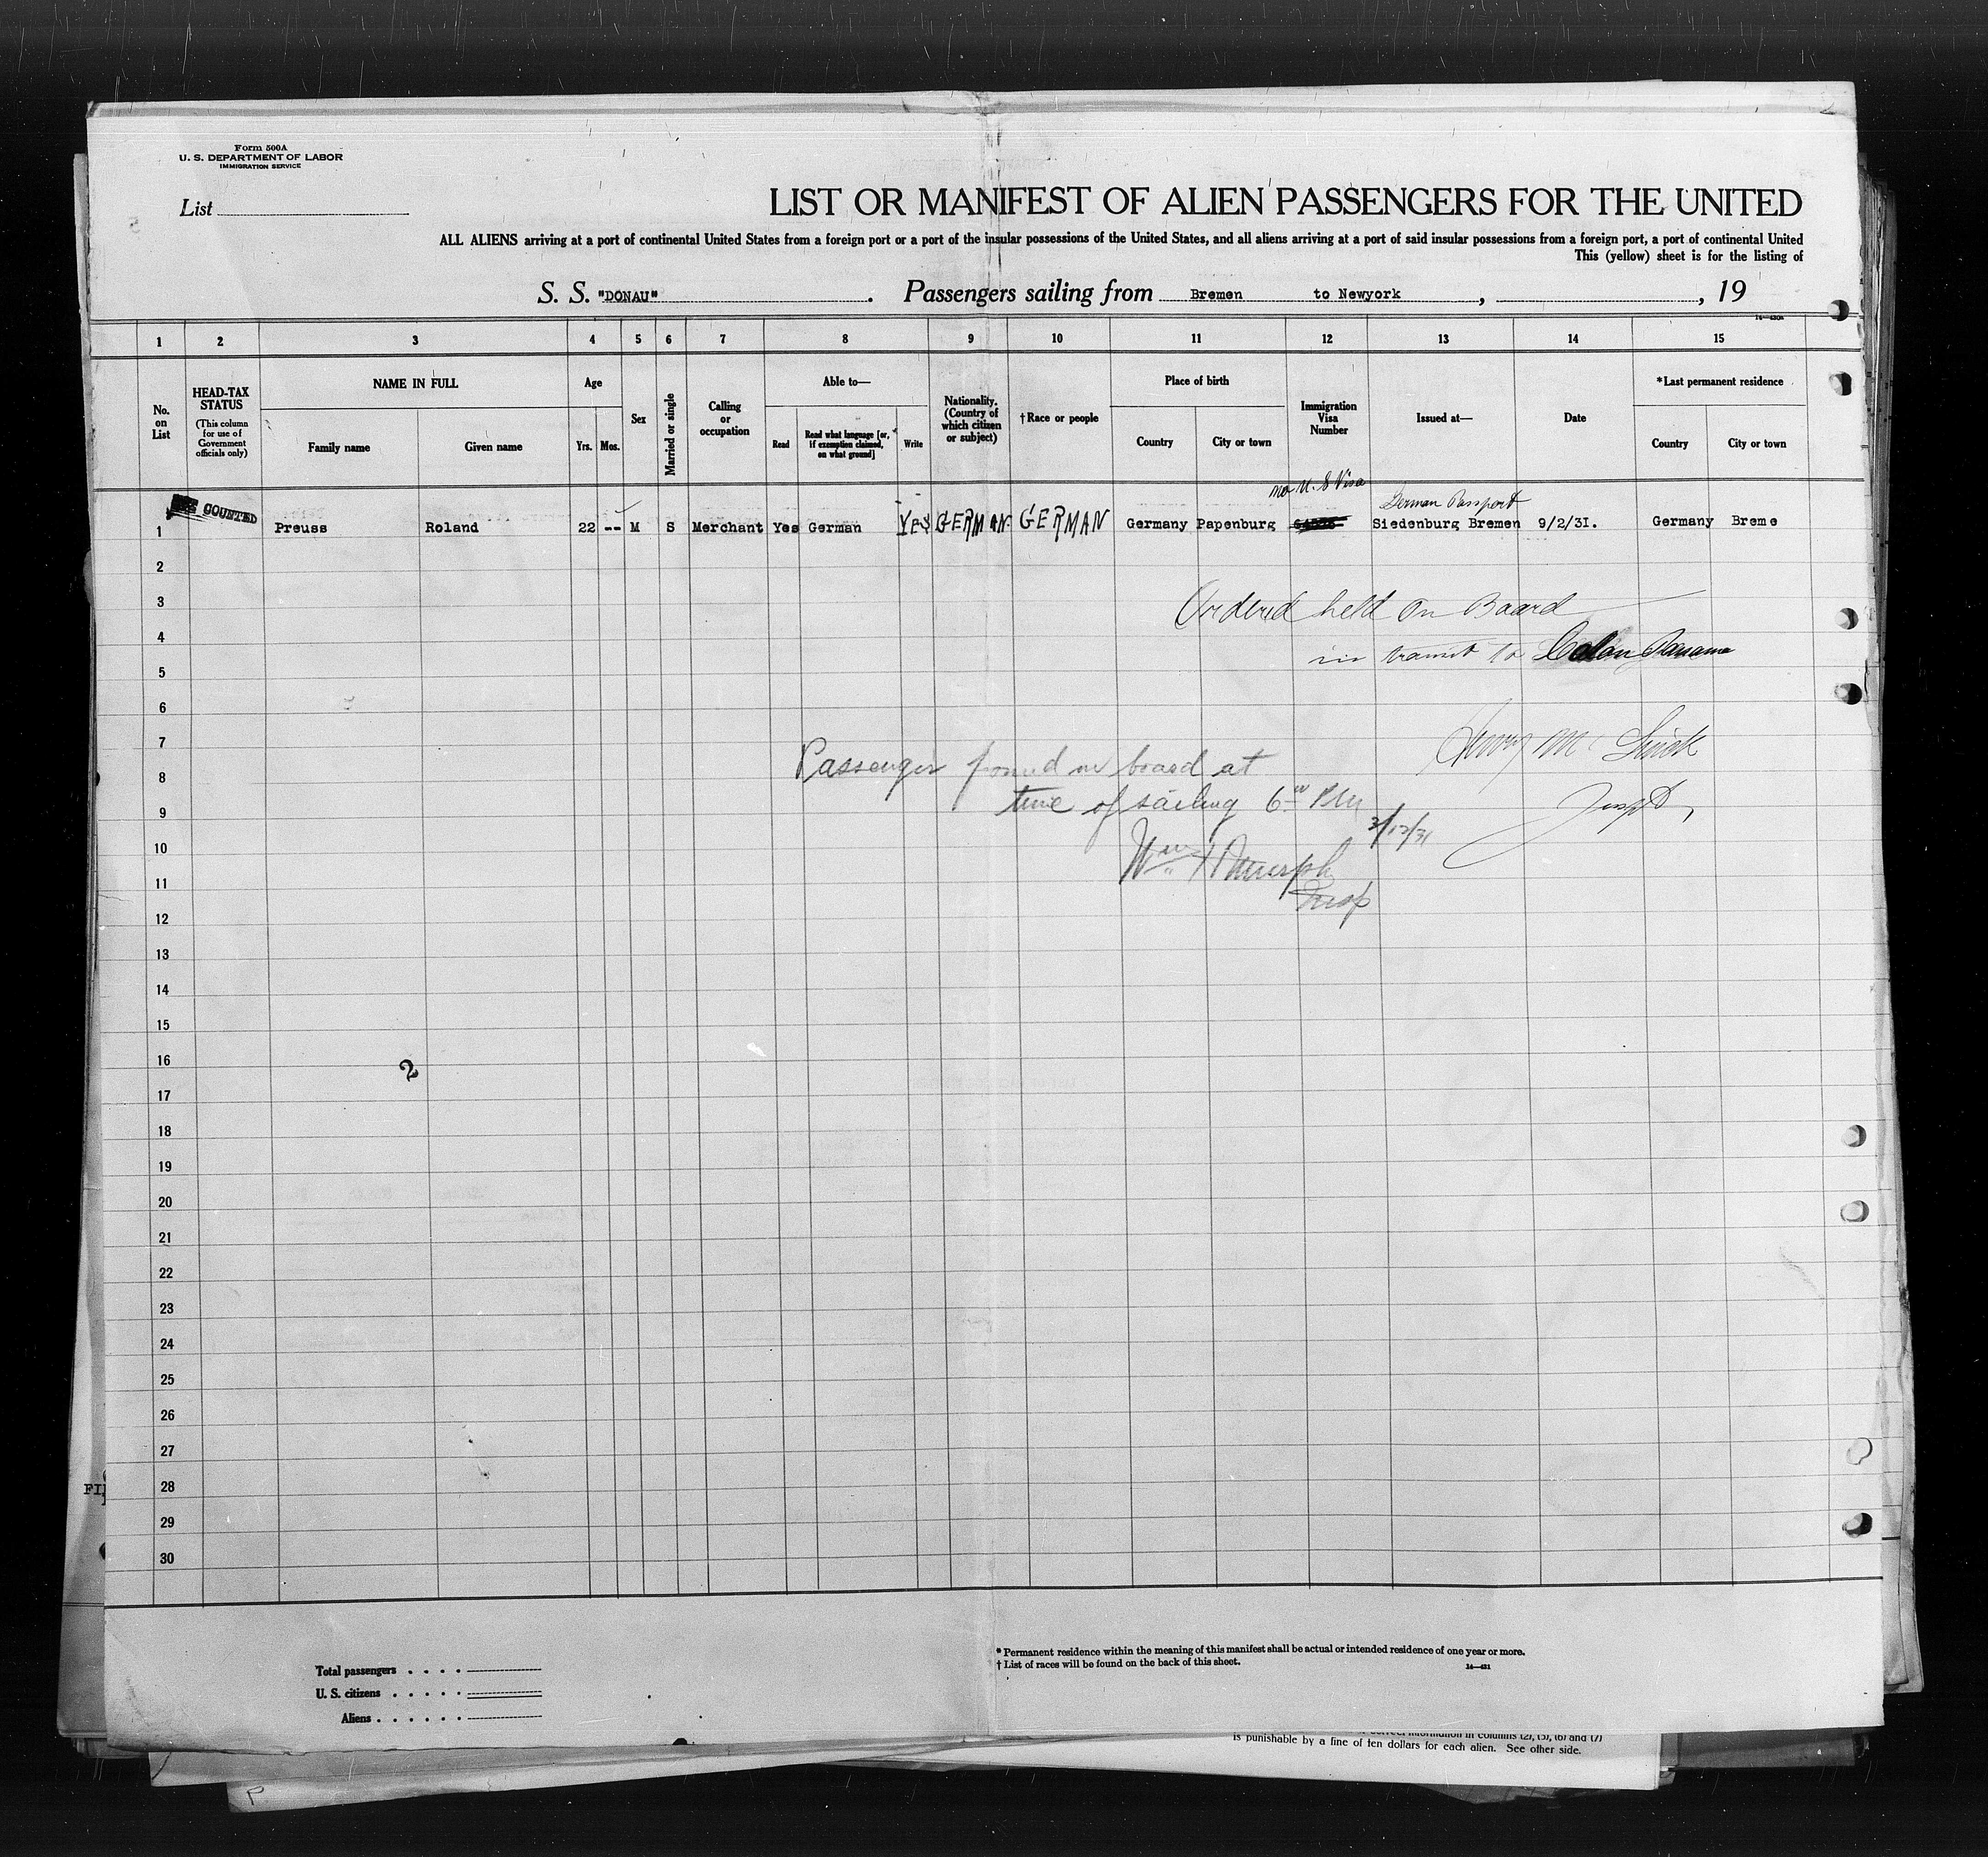 Form 500A
U. S. DEPARTMENT OF LABOR
IMMIGRATION SERVICE
List
LIST OR MANIFEST OF ALIEN PASSENGERS FOR THE UNITED
ALL ALIENS arriving at a port of continental United States from a foreign port or a port of the insular possessions of the United States, and all aliens arriving at a port of said insular possessions from a foreign port, a port of continental United
This (yellow) sheet is for the listing of
S. S. "DONAU" . Passengers sailing from Bremen to Newyork , , 19
1 2 3 4 5 6 7 8 9 10 11 12 13 14 15
No. on List
HEAD-TAX STATUS
(This column for use of Government officials only)
NAME IN FULL
Family name
Given name
Age
Yrs.
Mos.
Sex
Married or single
Calling or occupation
Able to—
Read
Read what language [or, if exemption claimed, on what ground]
Write
Nationality. (Country of which citizen or subject)
† Race or people
Place of birth
Country
City or town
Immigration Visa Number
Issued at—
Date
*Last permanent residence
Country
City or town
no U. S Visa
German Passport
COUNTED
1 Preuss Roland 22 -- M S Merchant Yes German YES GERMAN GERMAN Germany Papenburg Siedenburg Bremen 9/2/31. Germany Breme
2
3
Ordered held on Board
4
in transit to Colon Panama
5
6
7
8
Passenger found on board at
9
time of sailing 6 PM
3/12/31
10
Wm
11
Insp
12
13
14
15
16
2
17
18
19
20
21
22
23
24
25
26
27
28
29
30
* Permanent residence within the meaning of this manifest shall be actual or intended residence of one year or more.
† List of races will be found on the back of this sheet.
14—431
Total passengers . . . .
U. S. citizens . . . . .
Aliens . . . . . .
correct information in columns (2), (5), (6) and (7)
is punishable by a fine of ten dollars for each alien. See other side.